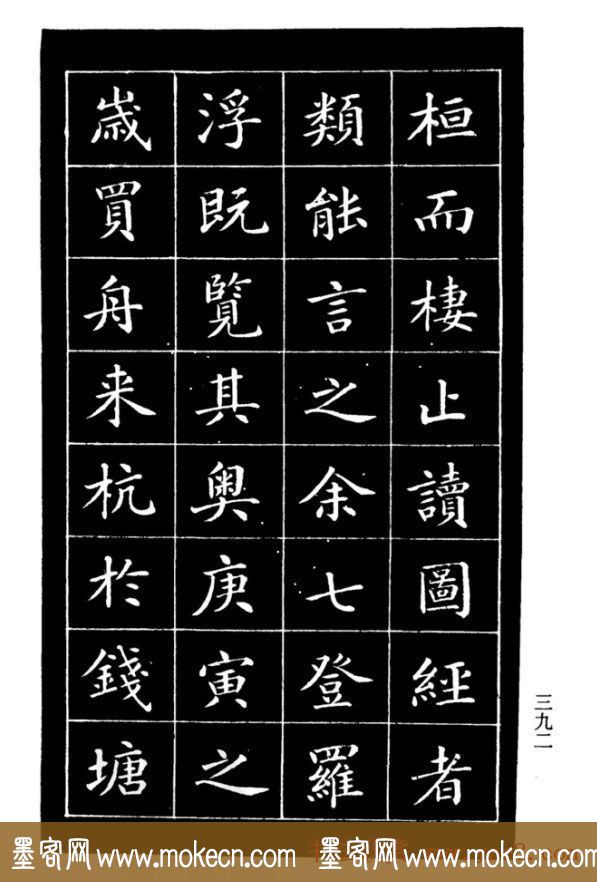 桓而棲止讀圖經者
類能言之余七登羅
浮既覽其奧庚寅之
歳買舟来杭於錢塘
三九二
墨客网 www.mokecn.com 墨客网 www.mokecn.com 墨客网 www.mokecn.com